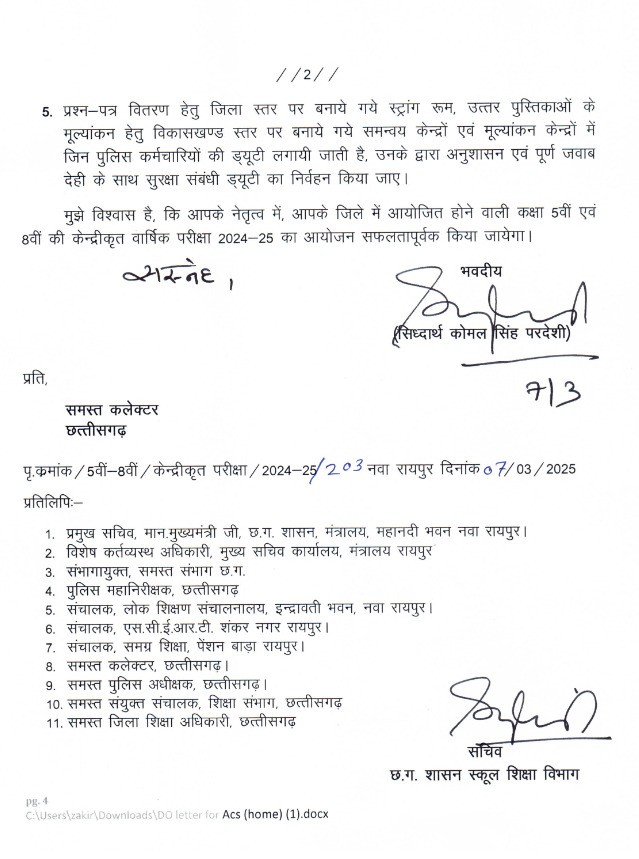 //2//
5. प्रश्न–पत्र वितरण हेतु जिला स्तर पर बनाये गये स्ट्रांग रूम, उत्तर पुस्तिकाओं के
मूल्यांकन हेतु विकासखण्ड स्तर पर बनाये गये समन्वय केन्द्रों एवं मूल्यांकन केन्द्रों में
जिन पुलिस कर्मचारियों की ड्यूटी लगायी जाती है, उनके द्वारा अनुशासन एवं पूर्ण जवाब
देही के साथ सुरक्षा संबंधी ड्यूटी का निर्वहन किया जाए।
मुझे विश्वास है, कि आपके नेतृत्व में, आपके जिले में आयोजित होने वाली कक्षा 5वीं एवं
8वीं की केन्द्रीकृत वार्षिक परीक्षा 2024-25 का आयोजन सफलतापूर्वक किया जायेगा।
सस्नेह,
भवदीय
(सिध्दार्थ कोमल सिंह परदेशी)
7/3
प्रति,
समस्त कलेक्टर
छत्तीसगढ़
पृ.कमांक/5वीं–8वीं/केन्द्रीकृत परीक्षा/2024-25/203 नवा रायपुर दिनांक 07/03/2025
प्रतिलिपिः–
1. प्रमुख सचिव, मान.मुख्यमंत्री जी, छ.ग. शासन, मंत्रालय, महानदी भवन नवा रायपुर।
2. विशेष कर्तव्यस्थ अधिकारी, मुख्य सचिव कार्यालय, मंत्रालय रायपुर
3. संभागायुक्त, समस्त संभाग छ.ग.
4. पुलिस महानिरीक्षक, छत्तीसगढ़
5. संचालक, लोक शिक्षण संचालनालय, इन्द्रावती भवन, नवा रायपुर।
6. संचालक, एस.सी.ई.आर.टी. शंकर नगर रायपुर।
7. संचालक, समग्र शिक्षा, पेंशन बाड़ा रायपुर।
8. समस्त कलेक्टर, छत्तीसगढ़।
9. समस्त पुलिस अधीक्षक, छत्तीसगढ़।
10. समस्त संयुक्त संचालक, शिक्षा संभाग, छत्तीसगढ़
11. समस्त जिला शिक्षा अधिकारी, छत्तीसगढ़
सचिव
छ.ग. शासन स्कूल शिक्षा विभाग
pg. 4
C:\Users\zakir\Downloads\DO letter for Acs (home) (1).docx